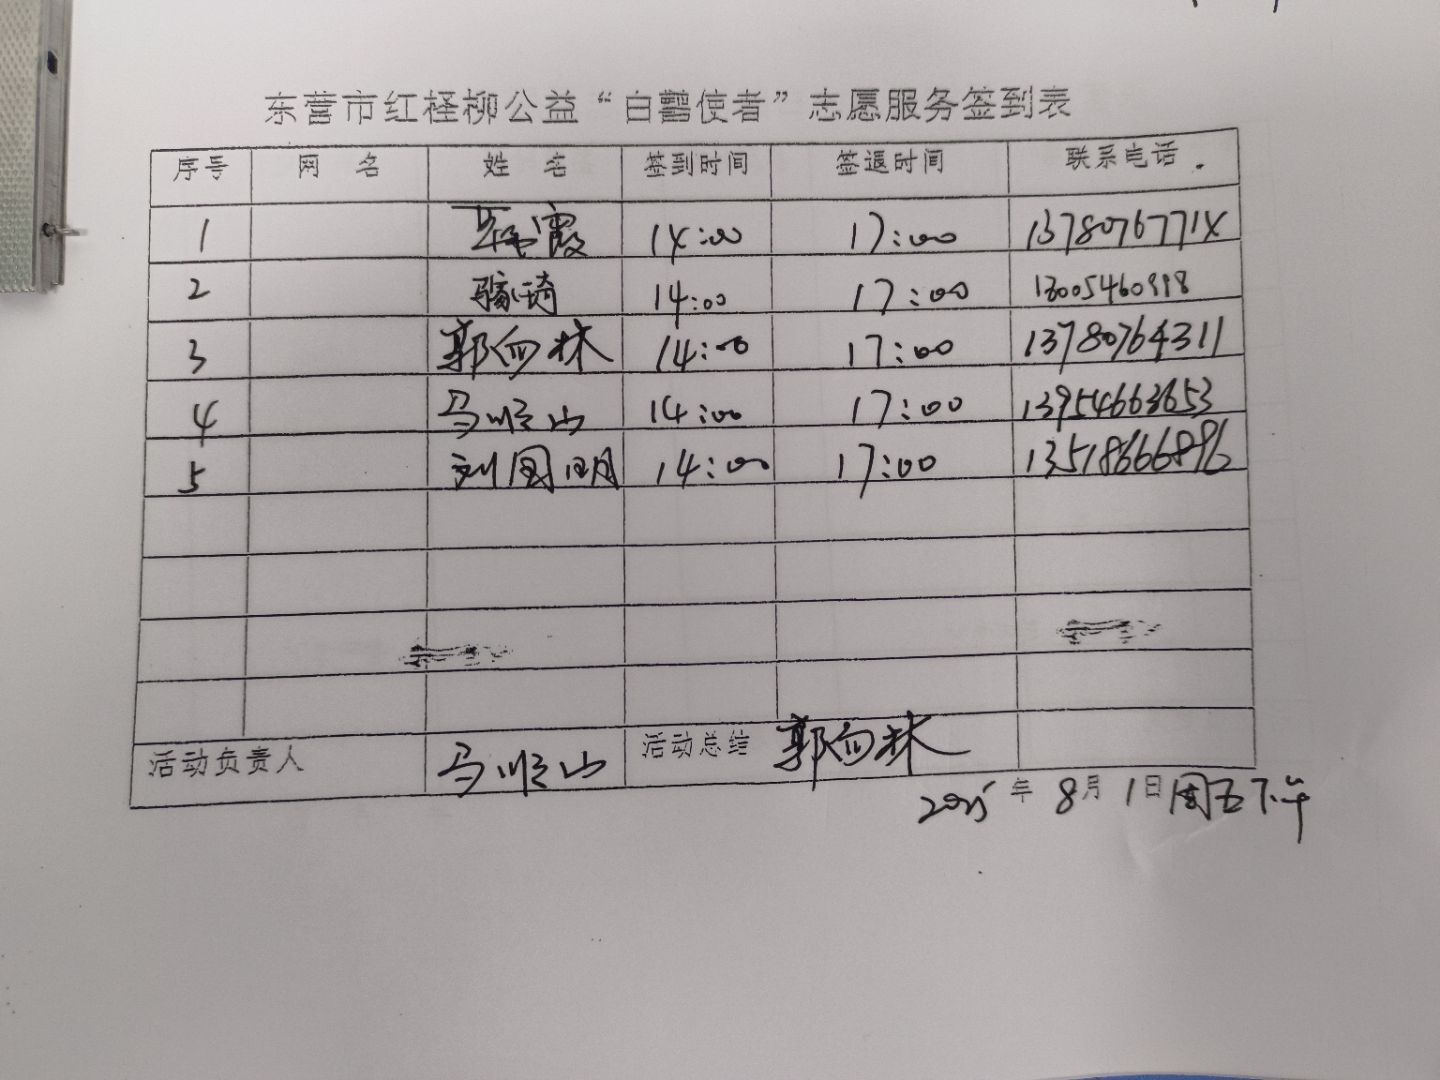 东营市红柽柳公益“白鹳使者”志愿服务签到表
序号 网 名 姓 名 签到时间 签退时间 联系电话
1 霞 14:00 17:00 13780767714
2 琦 14:00 17:00
3 郭向林 14:00 17:00 13780764311
4 马顺山 14:00 17:00 13954663653
5 刘国明 14:00 17:00 13518666896
活动负责人 马顺山 活动总结 郭向林
2025年 8月 1日周五下午